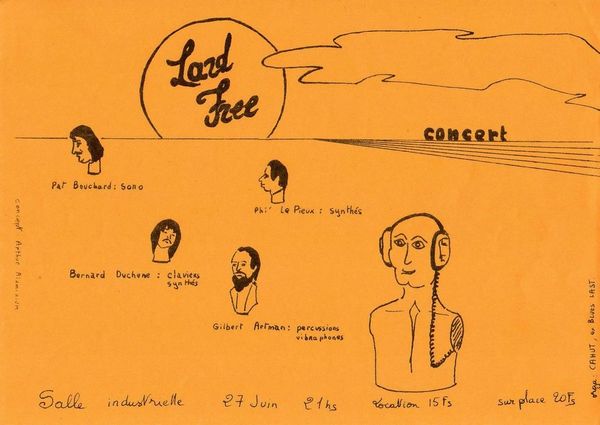 Lard
Free
concert
Pat Bouchard : sono
Phi' Le Pieux : synthés
Bernard Duchene : claviers
synthés
Gilbert Artman : percussions
vibraphones
concept : Arthur
orga : CAHUT, au BLUES LAST.
Salle industrielle 27 Juin 21hs Location 15Fs sur place 20Fs